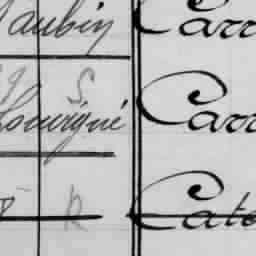 aubin Carr
S
Louvigné Carr
R Cate